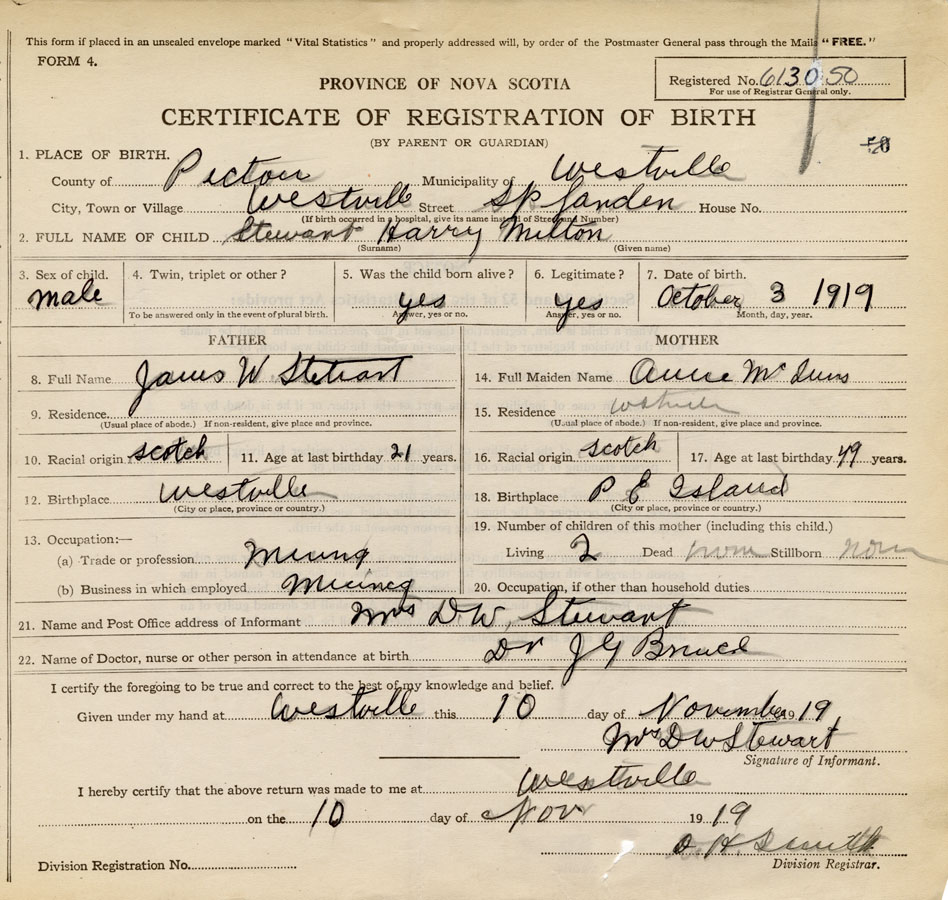 This form if placed in an unsealed envelope marked "Vital Statistics" and properly addressed will, by order of the Postmaster General pass through the Mails "FREE."
FORM 4.
Registered No. 613050
For use of Registrar General only.
PROVINCE OF NOVA SCOTIA
CERTIFICATE OF REGISTRATION OF BIRTH
(BY PARENT OR GUARDIAN)
50
1. PLACE OF BIRTH.
County of Pictou Municipality of Westville
City, Town or Village Westville Street House No.
(If birth occurred in a hospital, give its name instead of Street and Number)
2. FULL NAME OF CHILD Stewart Harry Milton
(Surname) (Given name)
3. Sex of child. male
4. Twin, triplet or other?
To be answered only in the event of plural birth.
5. Was the child born alive? yes
Answer, yes or no.
6. Legitimate? yes
Answer, yes or no.
7. Date of birth. October 3 1919
Month, day, year.
FATHER
8. Full Name James W Stewart
9. Residence
(Usual place of abode.) If non-resident, give place and province.
10. Racial origin scotch 11. Age at last birthday 21 years.
12. Birthplace Westville
(City or place, province or country.)
13. Occupation:—
(a) Trade or profession Mining
(b) Business in which employed Mining
MOTHER
14. Full Maiden Name Annie
15. Residence Westville
(Usual place of abode.) If non-resident, give place and province.
16. Racial origin scotch 17. Age at last birthday years.
18. Birthplace P E Island
(City or place, province or country.)
19. Number of children of this mother (including this child.)
Living 2 Dead none Stillborn none
20. Occupation, if other than household duties
21. Name and Post Office address of Informant Mrs D.W. Stewart
22. Name of Doctor, nurse or other person in attendance at birth Dr J G
I certify the foregoing to be true and correct to the best of my knowledge and belief.
Given under my hand at Westville this 10 day of November 1919
Mrs D W Stewart
Signature of Informant.
I hereby certify that the above return was made to me at Westville
on the 10 day of Nov 1919
D. H. Smith
Division Registration No. Division Registrar.